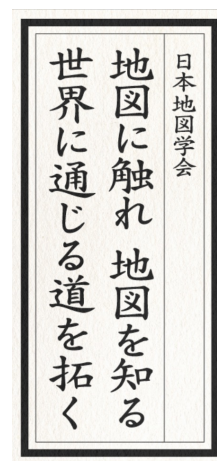 日本地図学会
地図に触れ 地図を知る
世界に通じる道を拓く